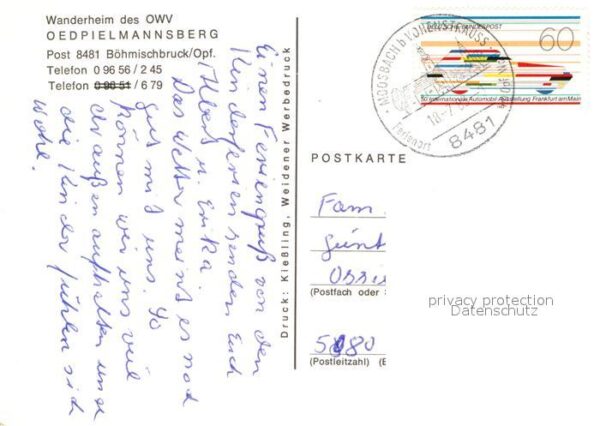 Wanderheim des OWV
OEDPIELMANNSBERG
Post 8481 Böhmischbruck/Opf.
Telefon 0 96 56 / 2 45
Telefon 0 96 51 / 6 79
Einen Feriengruß von den
Kinderferien senden Euch
Albert u. Erika.
Das Wetter meint es noch
gut mit uns. So
können wir uns viel
draußen aufhalten und
die Kinder fühlen sich
wohl.
Druck: Kießling, Weidener Werbedruck
MOOSBACH b VOHENSTRAUSS
Ferienort
8481
DEUTSCHE BUNDESPOST
60
50 Internationale Automobil-Ausstellung Frankfurt am Main
POSTKARTE
Fam.
Günt
(Postfach oder
5180
(Postleitzahl)
privacy protection
Datenschutz